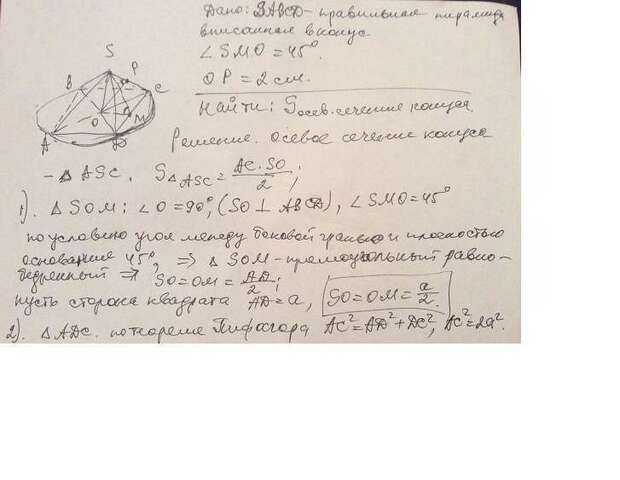 Дано: SABCD - правильная пирамида
вписанная в конус
∠ SMO = 45°.
OP = 2 см.
Найти: Sосев. сечение конуса.
Решение. осевое сечение конуса
S
P
B
C
O
M
A
D
- △ ASC, S△ASC = AC·SO/2;
1). △ SOM: ∠O = 90°, (SO ⊥ ABCD), ∠ SMO = 45°
по условию угол между боковой гранью и плоскостью
основания 45°, ⇒ △ SOM - прямоугольный равно-
бедренный ⇒ SO = OM = AD/2;
пусть сторона квадрата AD = a, SO = OM = a/2.
2). △ ADC. по теореме Пифагора AC² = AD² + DC², AC² = 2a².